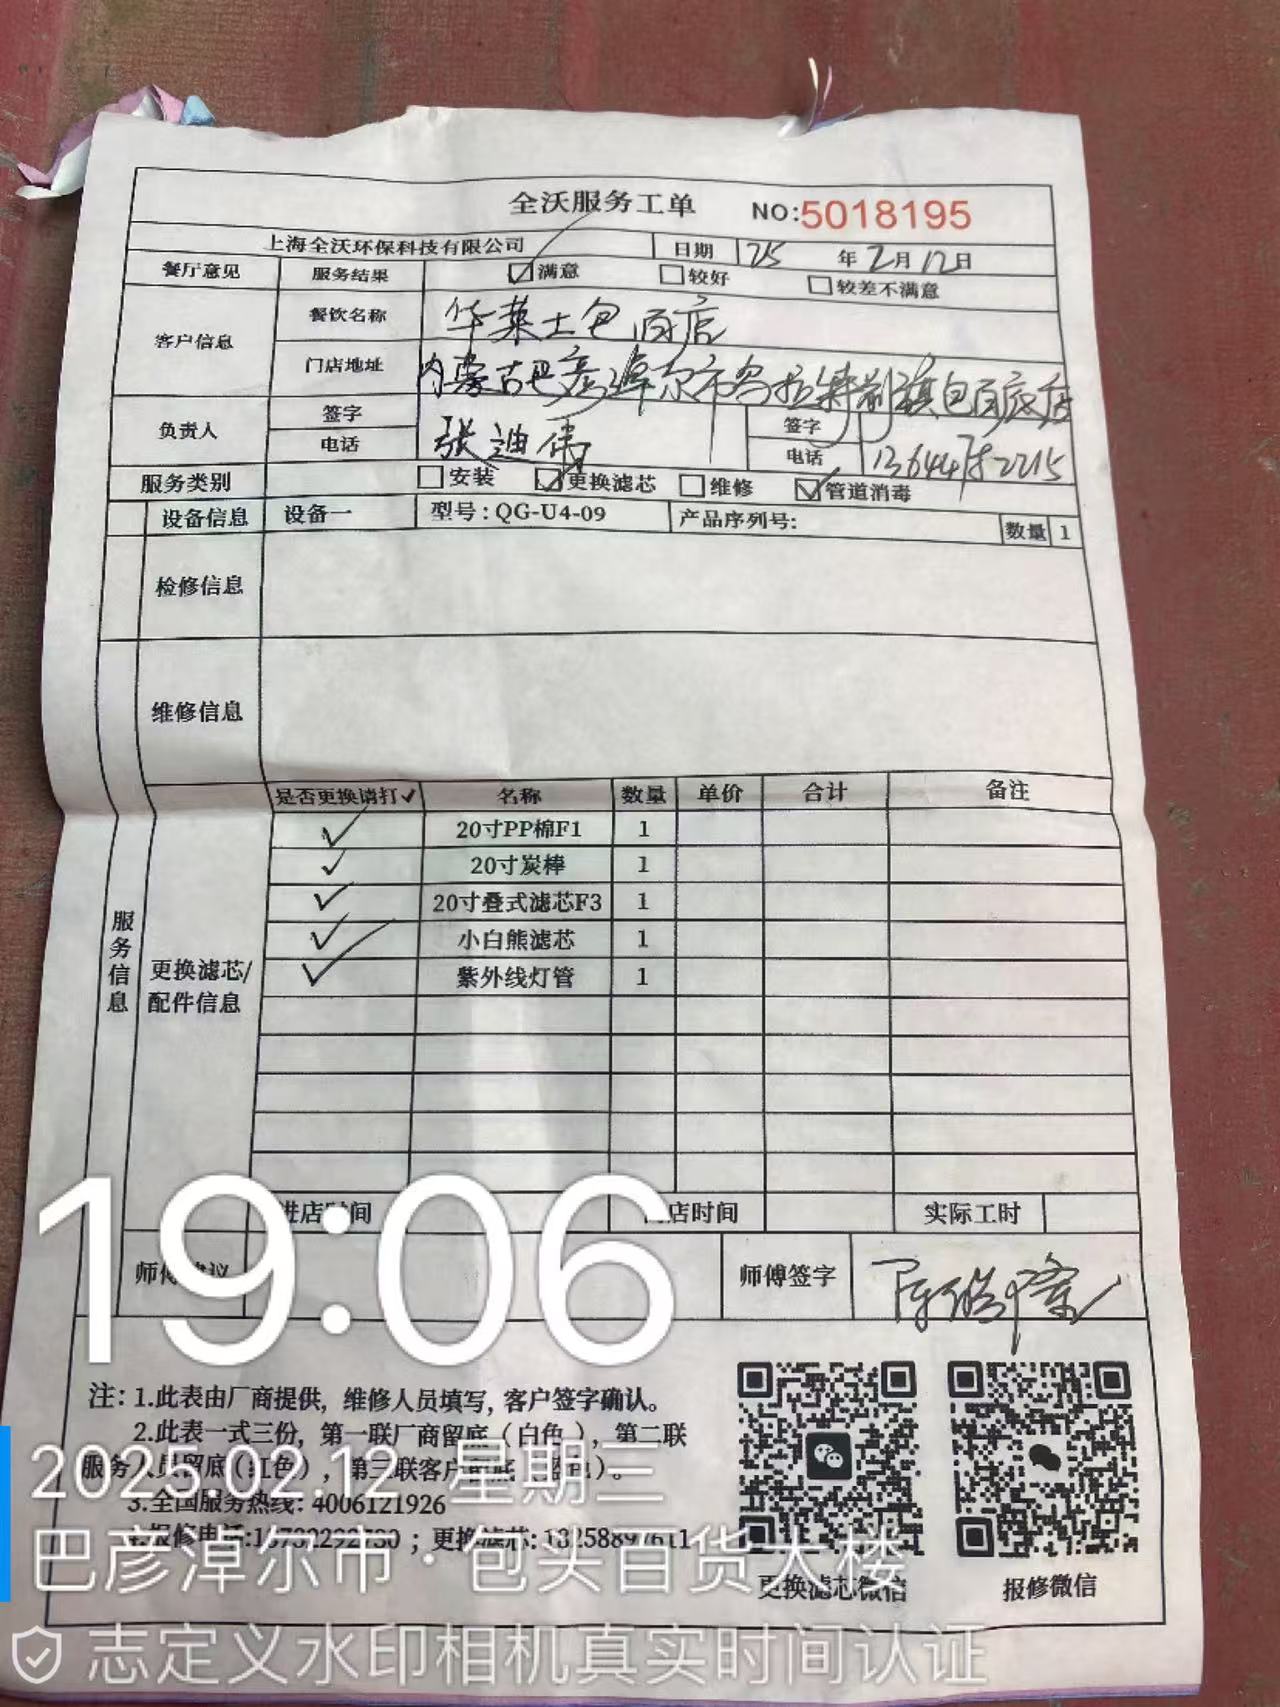 全沃服务工单 NO:5018195
上海全沃环保科技有限公司 日期 25 年 2月 12日
餐厅意见 服务结果 ☑满意 □较好 □较差不满意
客户信息 餐饮名称 华莱士包百店
门店地址 内蒙古巴彦淖尔市乌拉特前旗包百底店
负责人 签字 张迪 签字
电话 电话
服务类别 □安装 ☑更换滤芯 □维修 ☑管道消毒
设备信息 设备一 型号:QG-U4-09 产品序列号: 数量 1
检修信息
维修信息
服务信息
更换滤芯/配件信息
是否更换请打✓ 名称 数量 单价 合计 备注
✓ 20寸PP棉F1 1
✓ 20寸炭棒 1
✓ 20寸叠式滤芯F3 1
✓ 小白熊滤芯 1
✓ 紫外线灯管 1
进店时间 店时间 实际工时
师傅建议 师傅签字
19:06
注: 1.此表由厂商提供, 维修人员填写, 客户签字确认。
2.此表一式三份, 第一联厂商留底(白色), 第二联
服务人员留底(红色), 第三联客户留底(蓝色)。
3.全国服务热线: 4006121926
4.报修电话: ; 更换滤芯:
更换滤芯微信 报修微信
2025.02.12 星期三
巴彦淖尔市·包头百货大楼
志定义水印相机真实时间认证